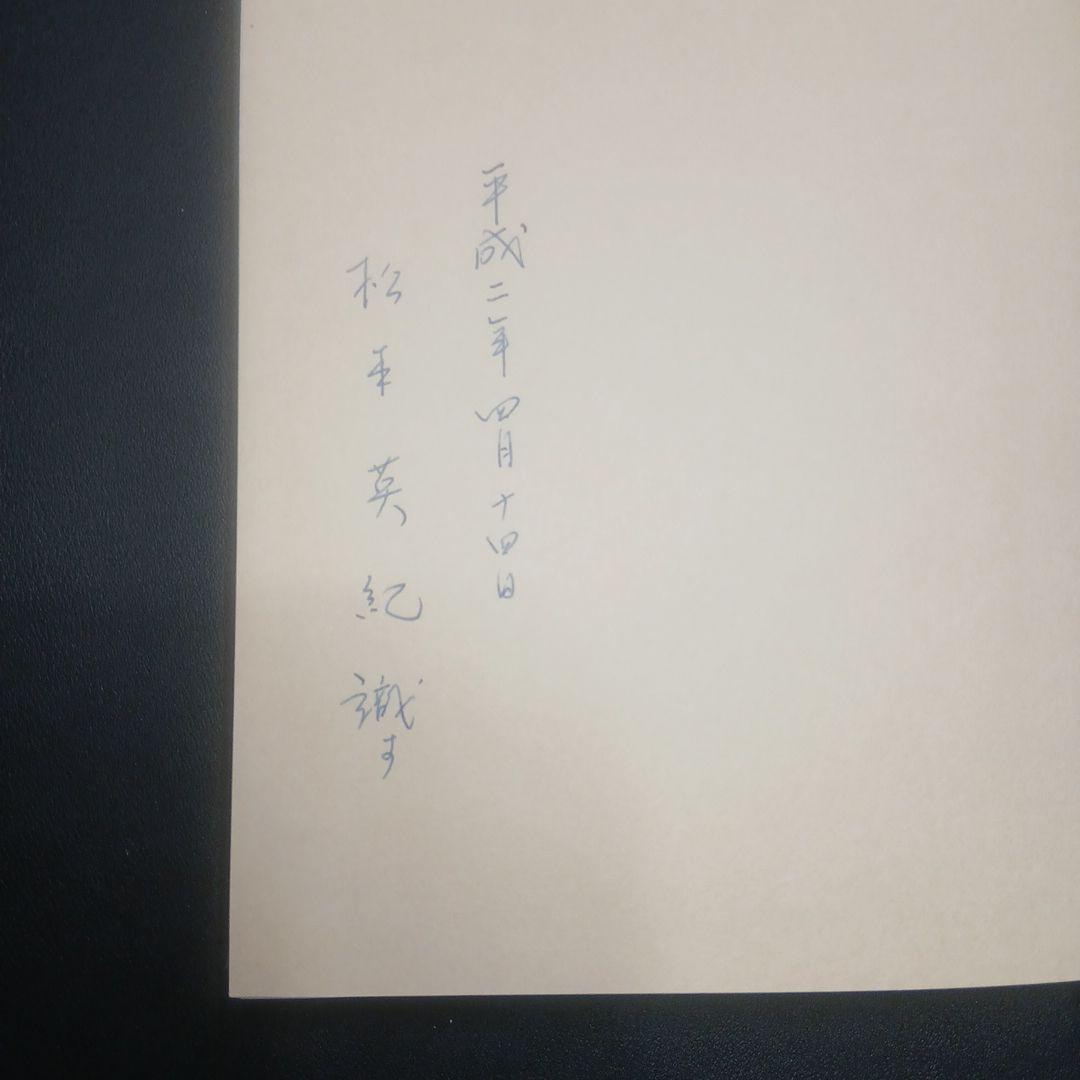 平成二年四月十四日
松本英紀識す